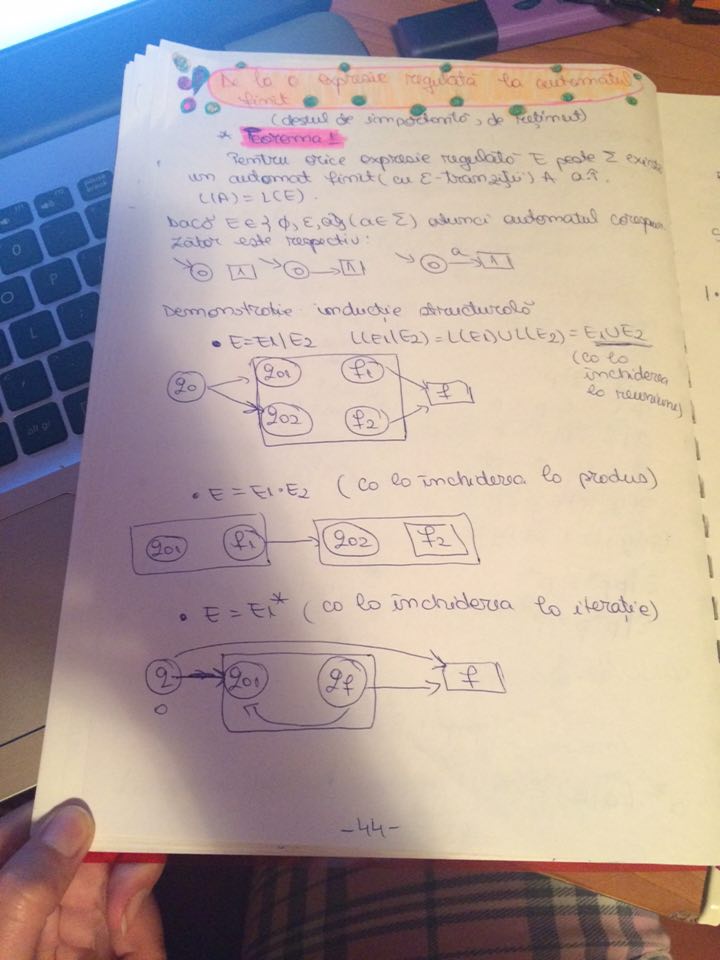 De la o expresie regulată la automatul
finit
(destul de importantă, de reținut)
* Teorema 1
Pentru orice expresie regulată E peste Σ există
un automat finit (cu ε-tranziții) A a.î.
L(A) = L(E).
Dacă E ∈ {∅, ε, a} (a ∈ Σ) atunci automatul corespun
zător este respectiv:
0 1 0 1 0 a 1
Demonstrație inducție structurală
• E = E1|E2 L(E1|E2) = L(E1) ∪ L(E2) = E1 ∪ E2
(ca la
închiderea
la reuniune)
q0 q01 f1 f
q02 f2
• E = E1 · E2 (ca la închiderea la produs)
q01 f1 q02 f2
• E = E1* (ca la închiderea la iterație)
q q01 qf f
0
-44-